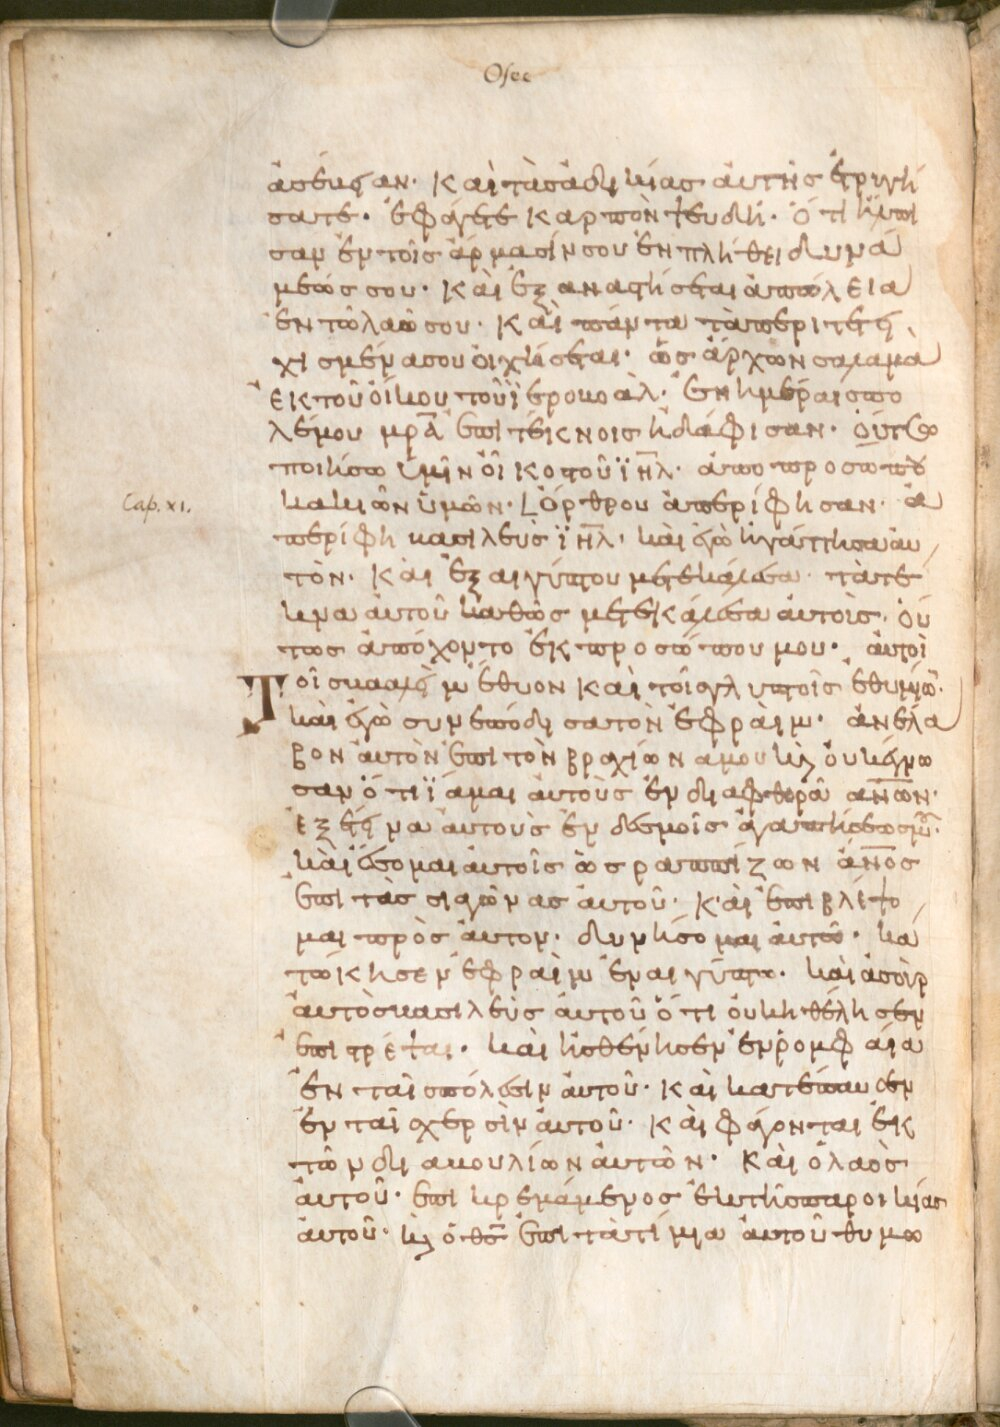 Osee
ἀσέβειαν· καὶ τὰς ἀδικίας αὐτῆς ἐτρυγή
σατε· ἐφάγετε καρπὸν ψευδῆ· ὅτι ἤλπι
σαν ἐν τοῖς ἅρμασίν σου ἐν πλήθει δυνά
μεώς σου· καὶ ἐξαναστήσεται ἀπώλεια
ἐν τῷ λαῷ σου· καὶ πάντα τὰ περιτετει
χισμένα σου οἰχήσεται· ὡς ἄρχων σαλαμὰ
ἐκ τοῦ οἴκου τοῦ ἱεροβοάλ· ἐν ἡμέραις πο
λέμου μρ̅α ἐπὶ τέκνοις ἠδάφισαν· οὕτω
ποιήσω ὑμῖν οἶκος τοῦ ϊη̅λ· ἀπὸ προσώπου
κακιῶν ὑμῶν· ὄρθρου ἀπερίφησαν· ἀ
Cap. XI.
περίφη βασιλεὺς ϊη̅λ· καὶ ἐγὼ ἠγάπησα αὐ
τὸν· καὶ ἐξ αἰγύπτου μετεκάλεσα τὰ τέ
κνα αὐτοῦ καθὼς μετεκάλεσα αὐτοὺς· οὕ
τως ἀπώχοντο ἐκ προσώπου μου· αὐτοὶ
τοῖς βααλεὶμ ἔθυον καὶ τοῖς γλυπτοῖς ἐθυμίω̅·
καὶ ἐγὼ συνεπόδισα τὸν ἐφράιμ· ἀνέλα
βον αὐτὸν ἐπὶ τὸν βραχίωνα μου κ̀ οὐκ ἔγνω
σαν ὅτι ἴαμαι αὐτοὺς ἐν διαφθορᾶ ανω̅ν·
ἐξέτεινα αὐτοὺς ἐν δεσμοῖς ἀγαπήσεώς μ̅ου·
καὶ ἔσομαι αὐτοῖς ὡς ραππίζων ανο̅ς
ἐπὶ τὰς σιαγόνας αὐτοῦ· καὶ ἐπιβλέψο
μαι πρὸς αὐτον· δυνήσομαι αὐτῶ· κα
τώκησεν ἐφραὶμ ἐν αἰγύπτω· καὶ ἀσοὺρ
αὐτὸς βασιλεὺς αὐτοῦ ὅτι οὐκ ἠθέλησεν
ἐπιστρέψαι· καὶ ἠσθένησεν ἐν ρομφαία
ἐν ταῖς πόλεσιν αὐτοῦ· καὶ κατέπαυσεν
ἐν ταῖς χερσὶν αὐτοῦ· καὶ φάγονται ἐκ
τῶν διαβουλίων αὐτῶν· καὶ ὁ λαὸς
αὐτοῦ· ἐπικρεμάμενος ἐκ τῆς παροικίας
αὐτοῦ· κ̀ ὁ θς̅ ἐπὶ τὰ τίμια αὐτοῦ θυμω